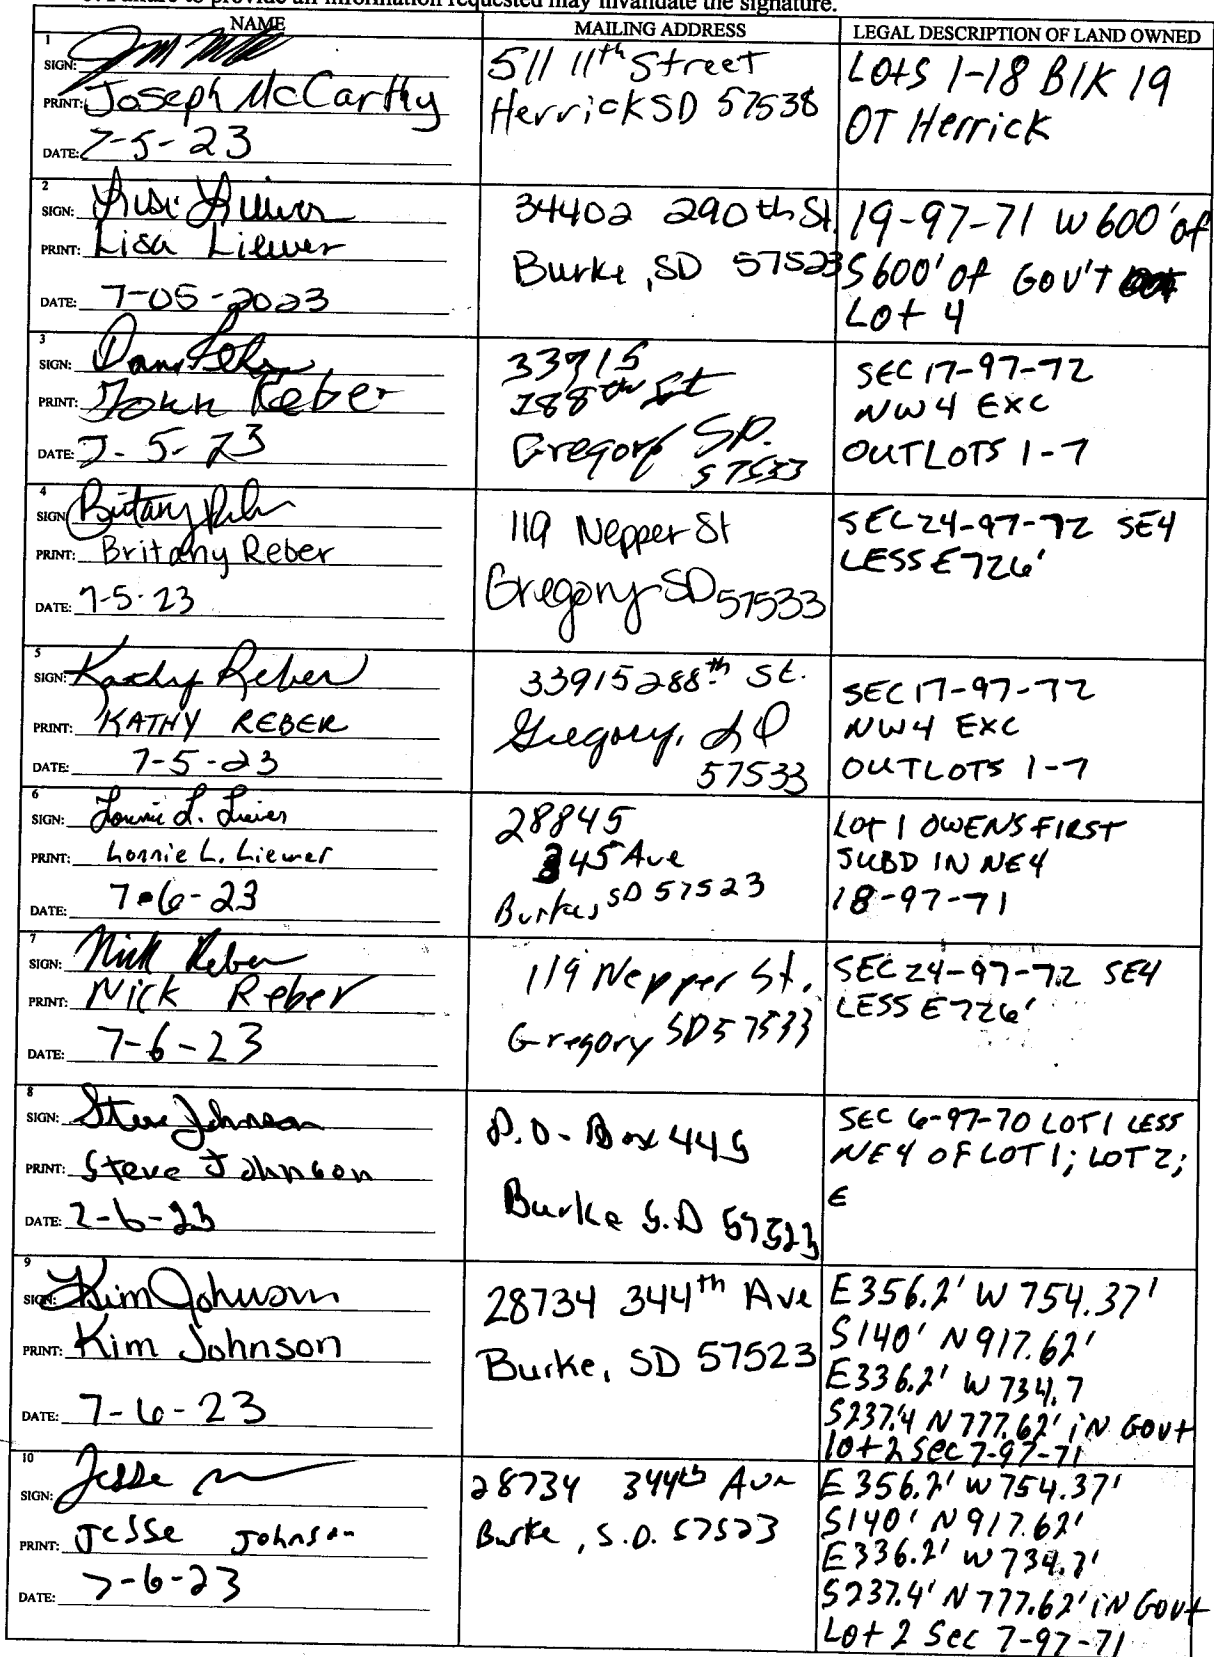 NAME MAILING ADDRESS LEGAL DESCRIPTION OF LAND OWNED
1
SIGN:
PRINT: Joseph McCarthy
DATE: 7-5-23
511 11th Street
Herrick SD 57538
Lots 1-18 Blk 19
OT Herrick
2
SIGN: Lisa Liewer
PRINT: Lisa Liewer
DATE: 7-05-2023
34402 290th St.
Burke, SD 57523
19-97-71 W 600' of
S 600' of GOV'T
Lot 4
3
SIGN:
PRINT: John Reber
DATE: 7-5-23
33915
288th St
Gregory SD.
57533
SEC 17-97-72
NW4 EXC
OUTLOTS 1-7
4
SIGN: Britany Reber
PRINT: Britany Reber
DATE: 7-5-23
119 Nepper St
Gregory SD 57533
SEC 24-97-72 SE4
LESS E726'
5
SIGN: Kathy Reber
PRINT: KATHY REBER
DATE: 7-5-23
33915 288th St.
Gregory, SD
57533
SEC 17-97-72
NW4 EXC
OUTLOTS 1-7
6
SIGN: Lonnie L. Liewer
PRINT: Lonnie L. Liewer
DATE: 7-6-23
28845
345 Ave
Burke, SD 57523
LOT 1 OWENS FIRST
SUBD IN NE4
18-97-71
7
SIGN: Nick Reber
PRINT: Nick Reber
DATE: 7-6-23
119 Nepper St.
Gregory SD 57533
SEC 24-97-72 SE4
LESS E726'
8
SIGN: Steve Johnson
PRINT: Steve Johnson
DATE: 7-6-23
P.O. Box 445
Burke S.D 57523
SEC 6-97-70 LOT 1 LESS
NE4 OF LOT 1; LOT 2;
E
9
SIGN: Kim Johnson
PRINT: Kim Johnson
DATE: 7-6-23
28734 344th Ave
Burke, SD 57523
E 356.2' W 754.37'
S140' N 917.62'
E336.2' W 734.7
S237.4 N 777.62' iN Govt
lot 2 Sec 7-97-71
10
SIGN: Jesse
PRINT: Jesse Johnson
DATE: 7-6-23
28734 344th Ave
Burke, S.D. 57523
E 356.2' W 754.37'
S140' N 917.62'
E336.2' W 734.7'
S237.4' N 777.62' iN Govt
Lot 2 Sec 7-97-71